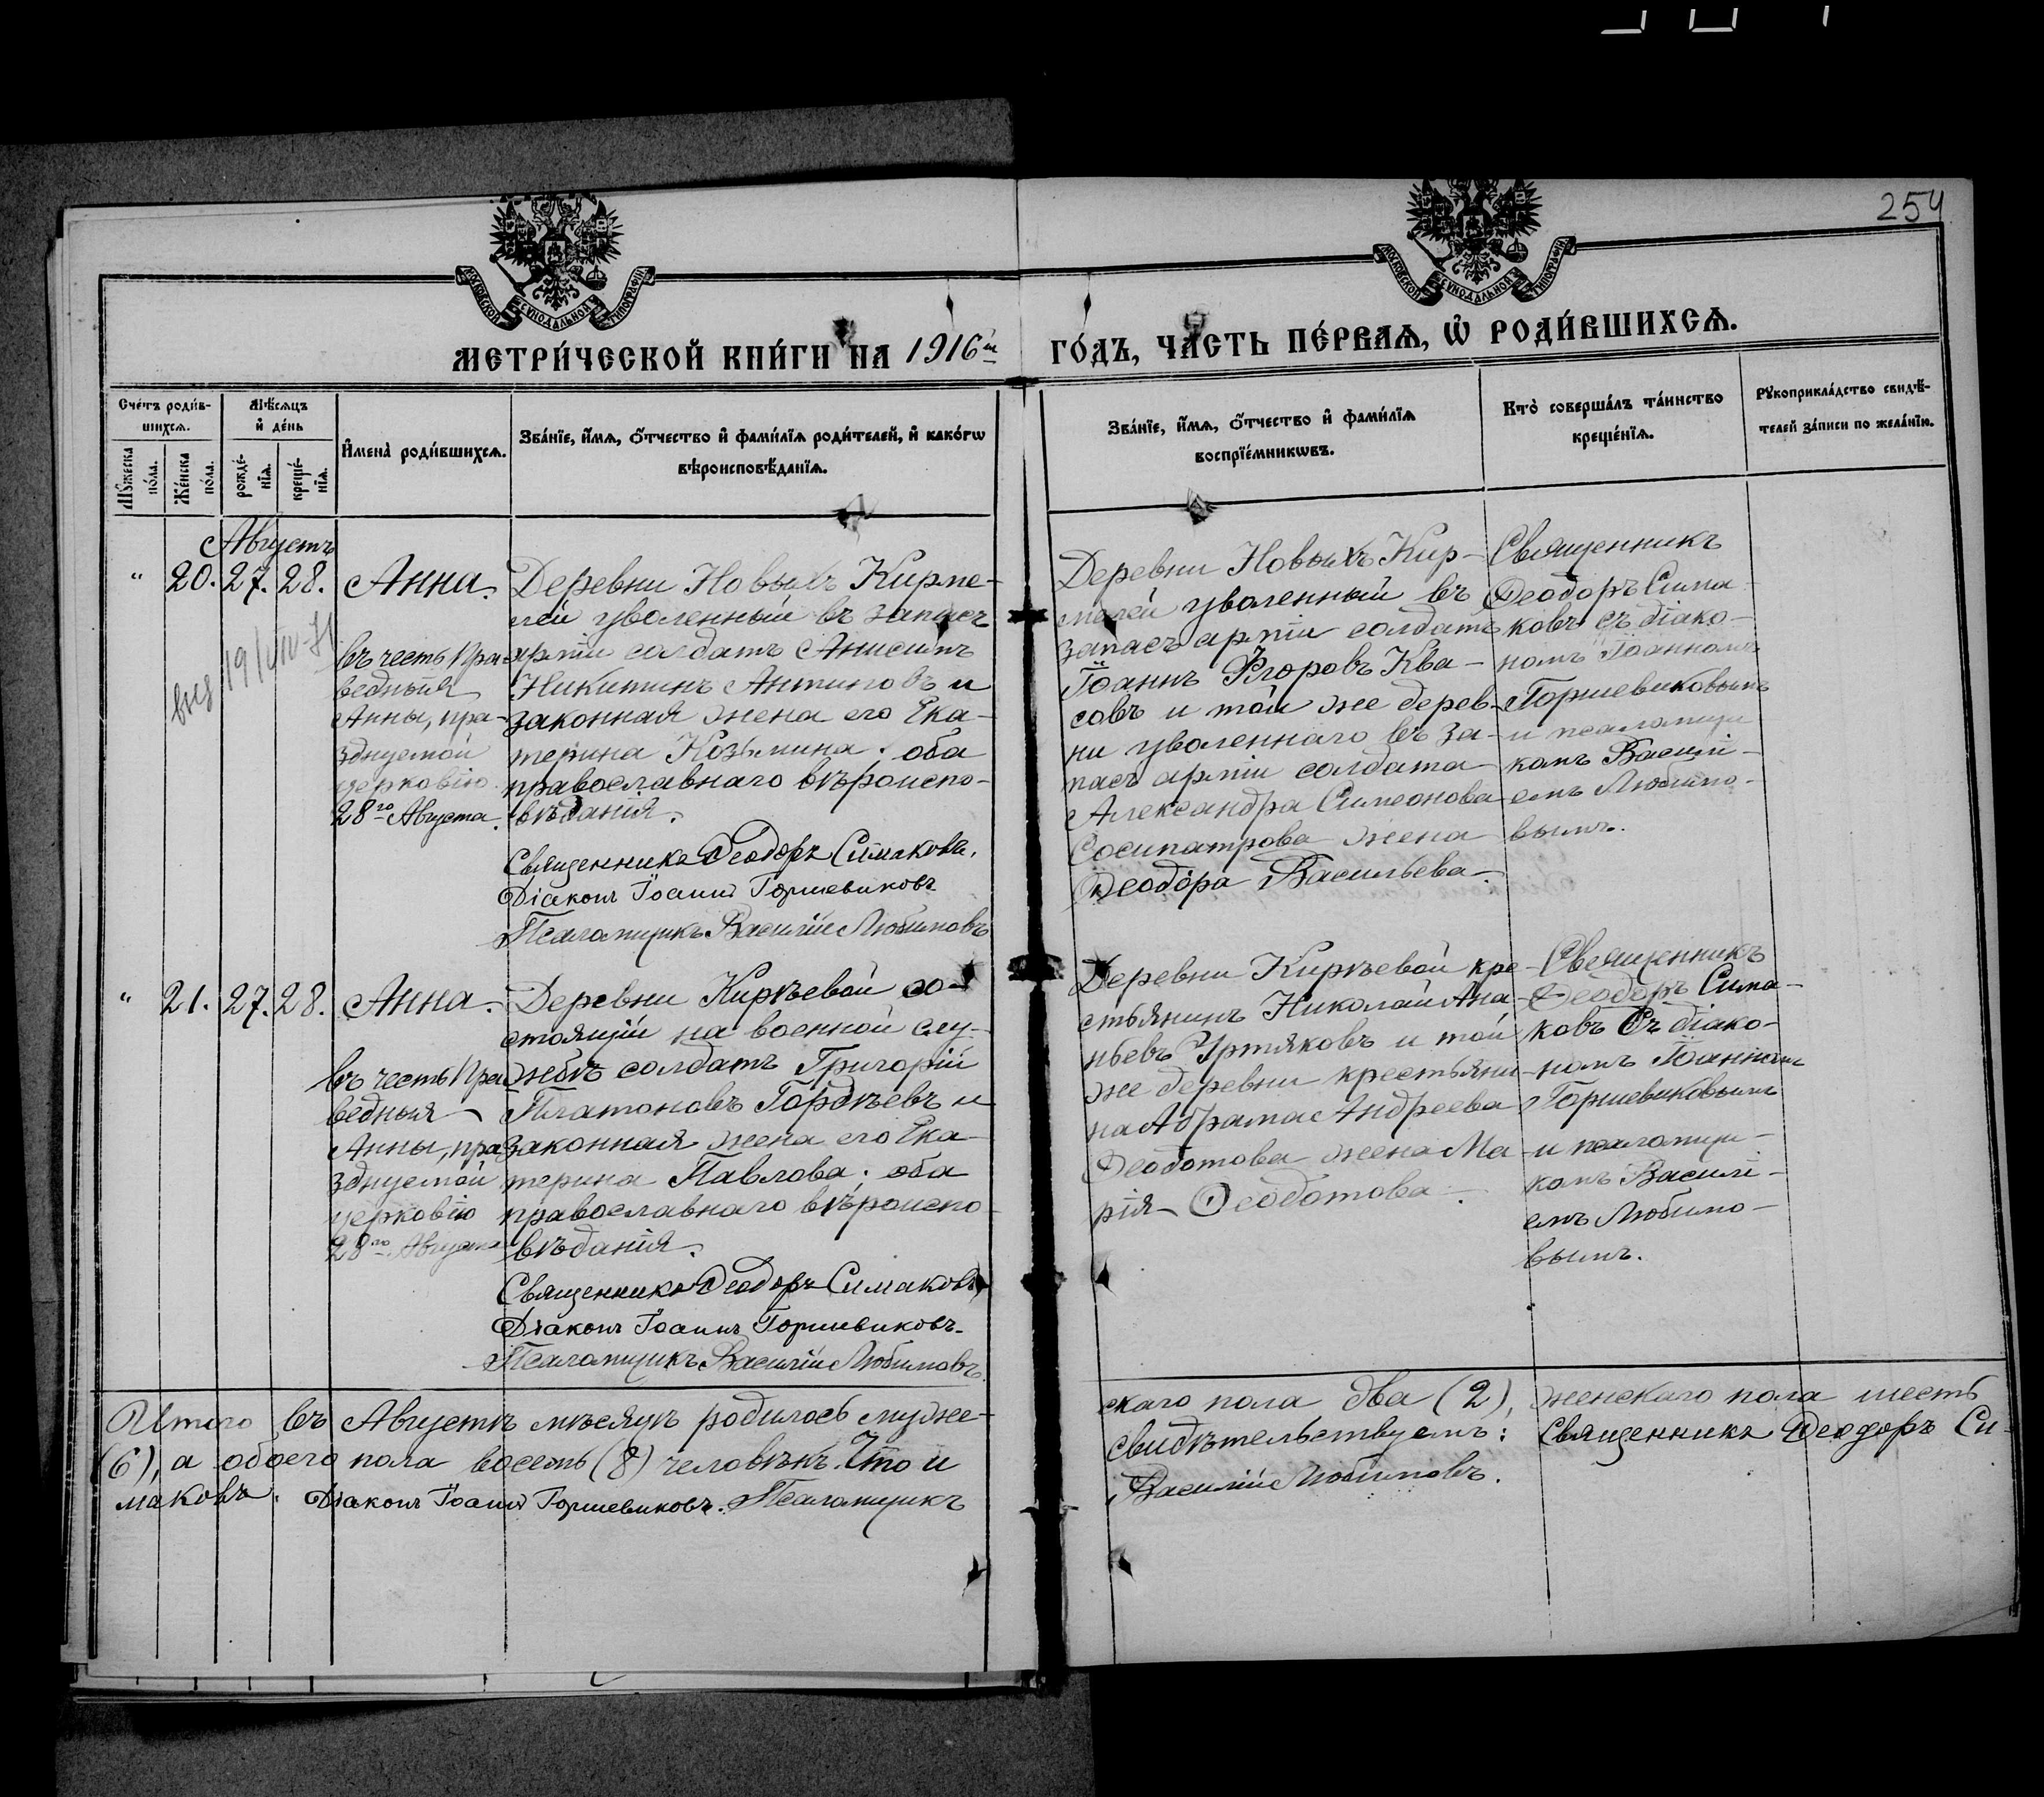 254
МОСКОВСКОЙ СѴНОДАЛЬНОЙ ТИПОГРАФІИ
МОСКОВСКОЙ СѴНОДАЛЬНОЙ ТИПОГРАФІИ
МЕТРИ́ЧЕСКОЙ КНИ́ГИ НА 1916й ГО́ДЪ, ЧА́СТЬ ПЕ́РВАѦ, Ѡ҆ РОДИ́ВШИХСѦ.
Сче́тъ роди́в-
шихсѧ.
Мꙋ́жеска по́ла.
Же́нска по́ла.
Мѣ́сѧцъ
и҆ де́нь
рожде́-
нїѧ.
креще́-
нїѧ.
И҆мена̀ роди́вшихсѧ.
Зва́нїе, и҆́мѧ, ѻ҆́тчество и҆ фамилїѧ роди́телей, и҆ како́гѡ
вѣроисповѣ́данїѧ.
Зва́нїе, и҆́мѧ, ѻ҆́тчество и҆ фами́лїѧ
воспрїе́мникѡвъ.
Кто̀ соверша́лъ та́инство
креще́нїѧ.
Рꙋкоприкла́дство свидѣ́-
телей за́писи по жела́нїю.
Августъ
" 20. 27. 28. Анна.
въ честь Пра-
ведныя
Анны, пра-
зднуемой
церковію
28го Августа.
Деревни Новыхъ Кирме-
лей уволенный въ запасъ
арміи солдатъ Анисимъ
Никитинъ Антиповъ и
законная жена его Ека-
терина Козьмина; оба
православнаго вѣроиспо-
вѣданія.
Священникъ Ѳеодоръ Симаковъ.
Діаконъ Іоаннъ Горшевиковъ
Псаломщикъ Василій Любимовъ
Деревни Новыхъ Кир-
мелей уволенный въ
запасъ арміи солдатъ
Іоаннъ Егоровъ Ква-
совъ и той же дерев-
ни уволеннаго въ за-
пасъ арміи солдата
Александра Симеонова
Сосипатрова жена
Ѳеодора Васильева.
Священникъ
Ѳеодоръ Сима-
ковъ съ діако-
номъ Іоанномъ
Горшевиковымъ
и псаломщи
комъ Василі-
емъ Любимо-
вымъ.
" 21. 27. 28. Анна.
въ честь Пра
ведныя
Анны, пра
зднуемой
церковію
28го Августа
Деревни Киръевой со-
стоящій на военной слу-
жбѣ солдатъ Григорій
Платоновъ Гордѣевъ и
законная жена его Ека-
терина Павлова; оба
православнаго вѣроиспо-
вѣданія.
Священникъ Ѳеодоръ Симаковъ
Діаконъ Іоаннъ Горшевиковъ.
Псаломщикъ Василій Любимовъ.
Деревни Киръевой кре-
стьянинъ Николай Ана-
ньевъ Уртяковъ и той
же деревни крестьяни-
на Абрама Андреева
Ѳеодотова жена Ма-
рія Ѳеодотова.
Священникъ
Ѳеодоръ Сима-
ковъ съ діако-
номъ Іоанномъ
Горшевиковымъ
и псаломщи-
комъ Василі-
емъ Любимо-
вымъ.
Итого въ Августѣ мѣсяцѣ родилось муже-
скаго пола два (2), женскаго пола шесть
(6), а обоего пола восемь (8) человѣкъ. Что и
свидѣтельствуемъ: Священникъ Ѳеодоръ Си-
маковъ. Діаконъ Іоаннъ Горшевиковъ. Псаломщикъ
Василій Любимовъ.